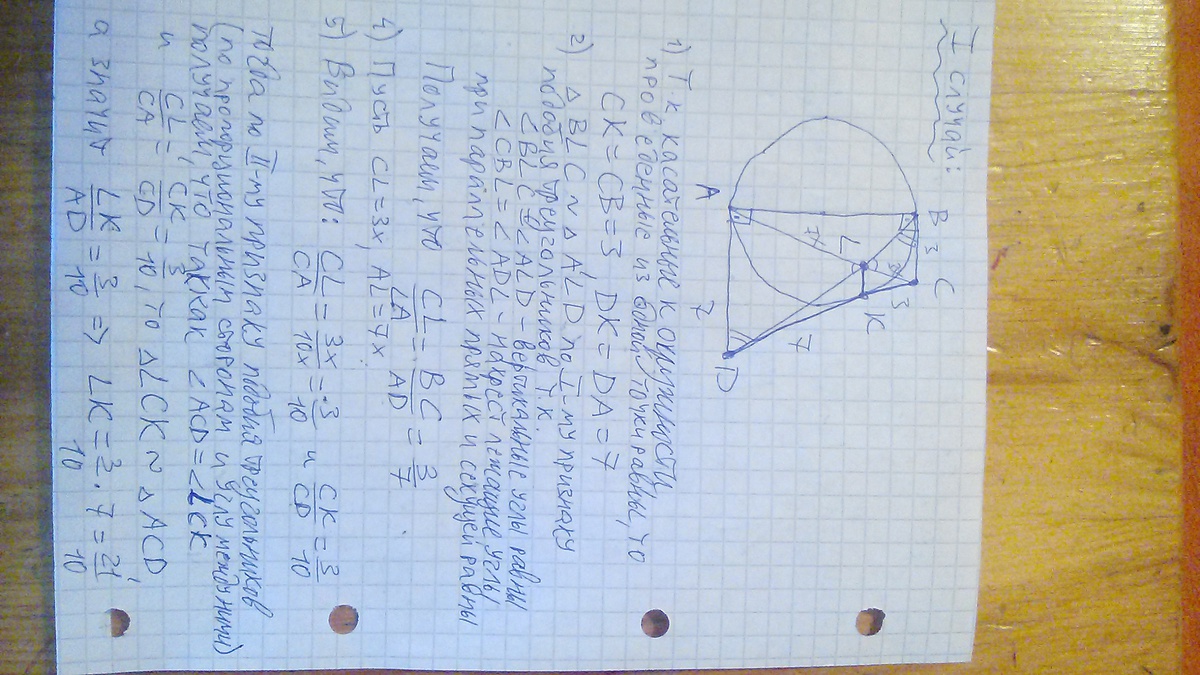 I случай:
A B 3 C
L 7x 3x 3 K
7 7 D
1) Т.к касательные к окружности,
проведенные из одной точки равны, то
CK = CB = 3 DK = DA = 7
2) △ BLC ~ △ ALD по I-му признаку
подобия треугольников т.к.
∠BLC = ∠ALD - вертикальные углы равны
∠CBL = ∠ADL - накрест лежащие углы
при параллельных прямых и секущей равны
Получаем, что CL/LA = BC/AD = 3/7
4) Пусть CL = 3x, AL = 7x.
5) Видим, что: CL/CA = 3x/10x = 3/10 и CK/CD = 3/10
тогда по II-му признаку подобия треугольников
(по пропорциональным сторонам и углу между ними)
получаем, что так как ∠ACD = ∠LCK
и CL/CA = CK/CD = 3/10, то △LCK ~ △ACD
а значит LK/AD = 3/10 => LK = 3/10 · 7 = 21/10